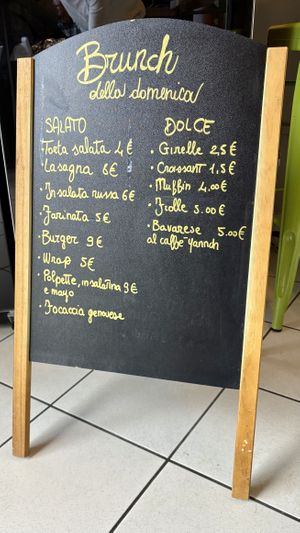 Brunch
della domenica
SALATO
• Torta salata 4 €
• Lasagna 6 €
• Insalata russa 6 €
• Farinata 5 €
• Burger 9 €
• Wrap 5 €
• Polpette, insalatina 9 €
e mayo
• Focaccia genovese
DOLCE
• Girelle 2,5 €
• Croissant 1,5 €
• Muffin 4.00 €
• Frolle 5.00 €
• Bavarese 5.00 €
al caffè